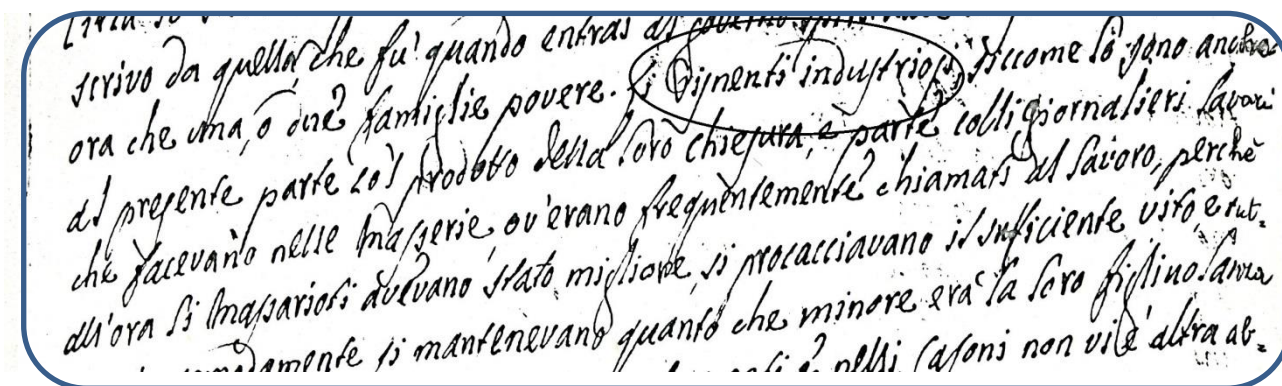 scrivo da quella, che fu' quando entrai al governo
ora che una, o due famiglie povere. Li Pisnenti industriosi, siccome lo sono anche
al presente, parte col prodotto della loro chiesura, e parte colli giornalieri lavori
che facevano nelle Masserie, ov'erano frequentemente chiamati al lavoro, perchè
all'ora li Massarioti avevano stato migliore, si procacciavano il sufficiente vito e tut-
si mantenevano quanto che minore era la loro figliuolanza
nelli Casoni non vi è altra ab-